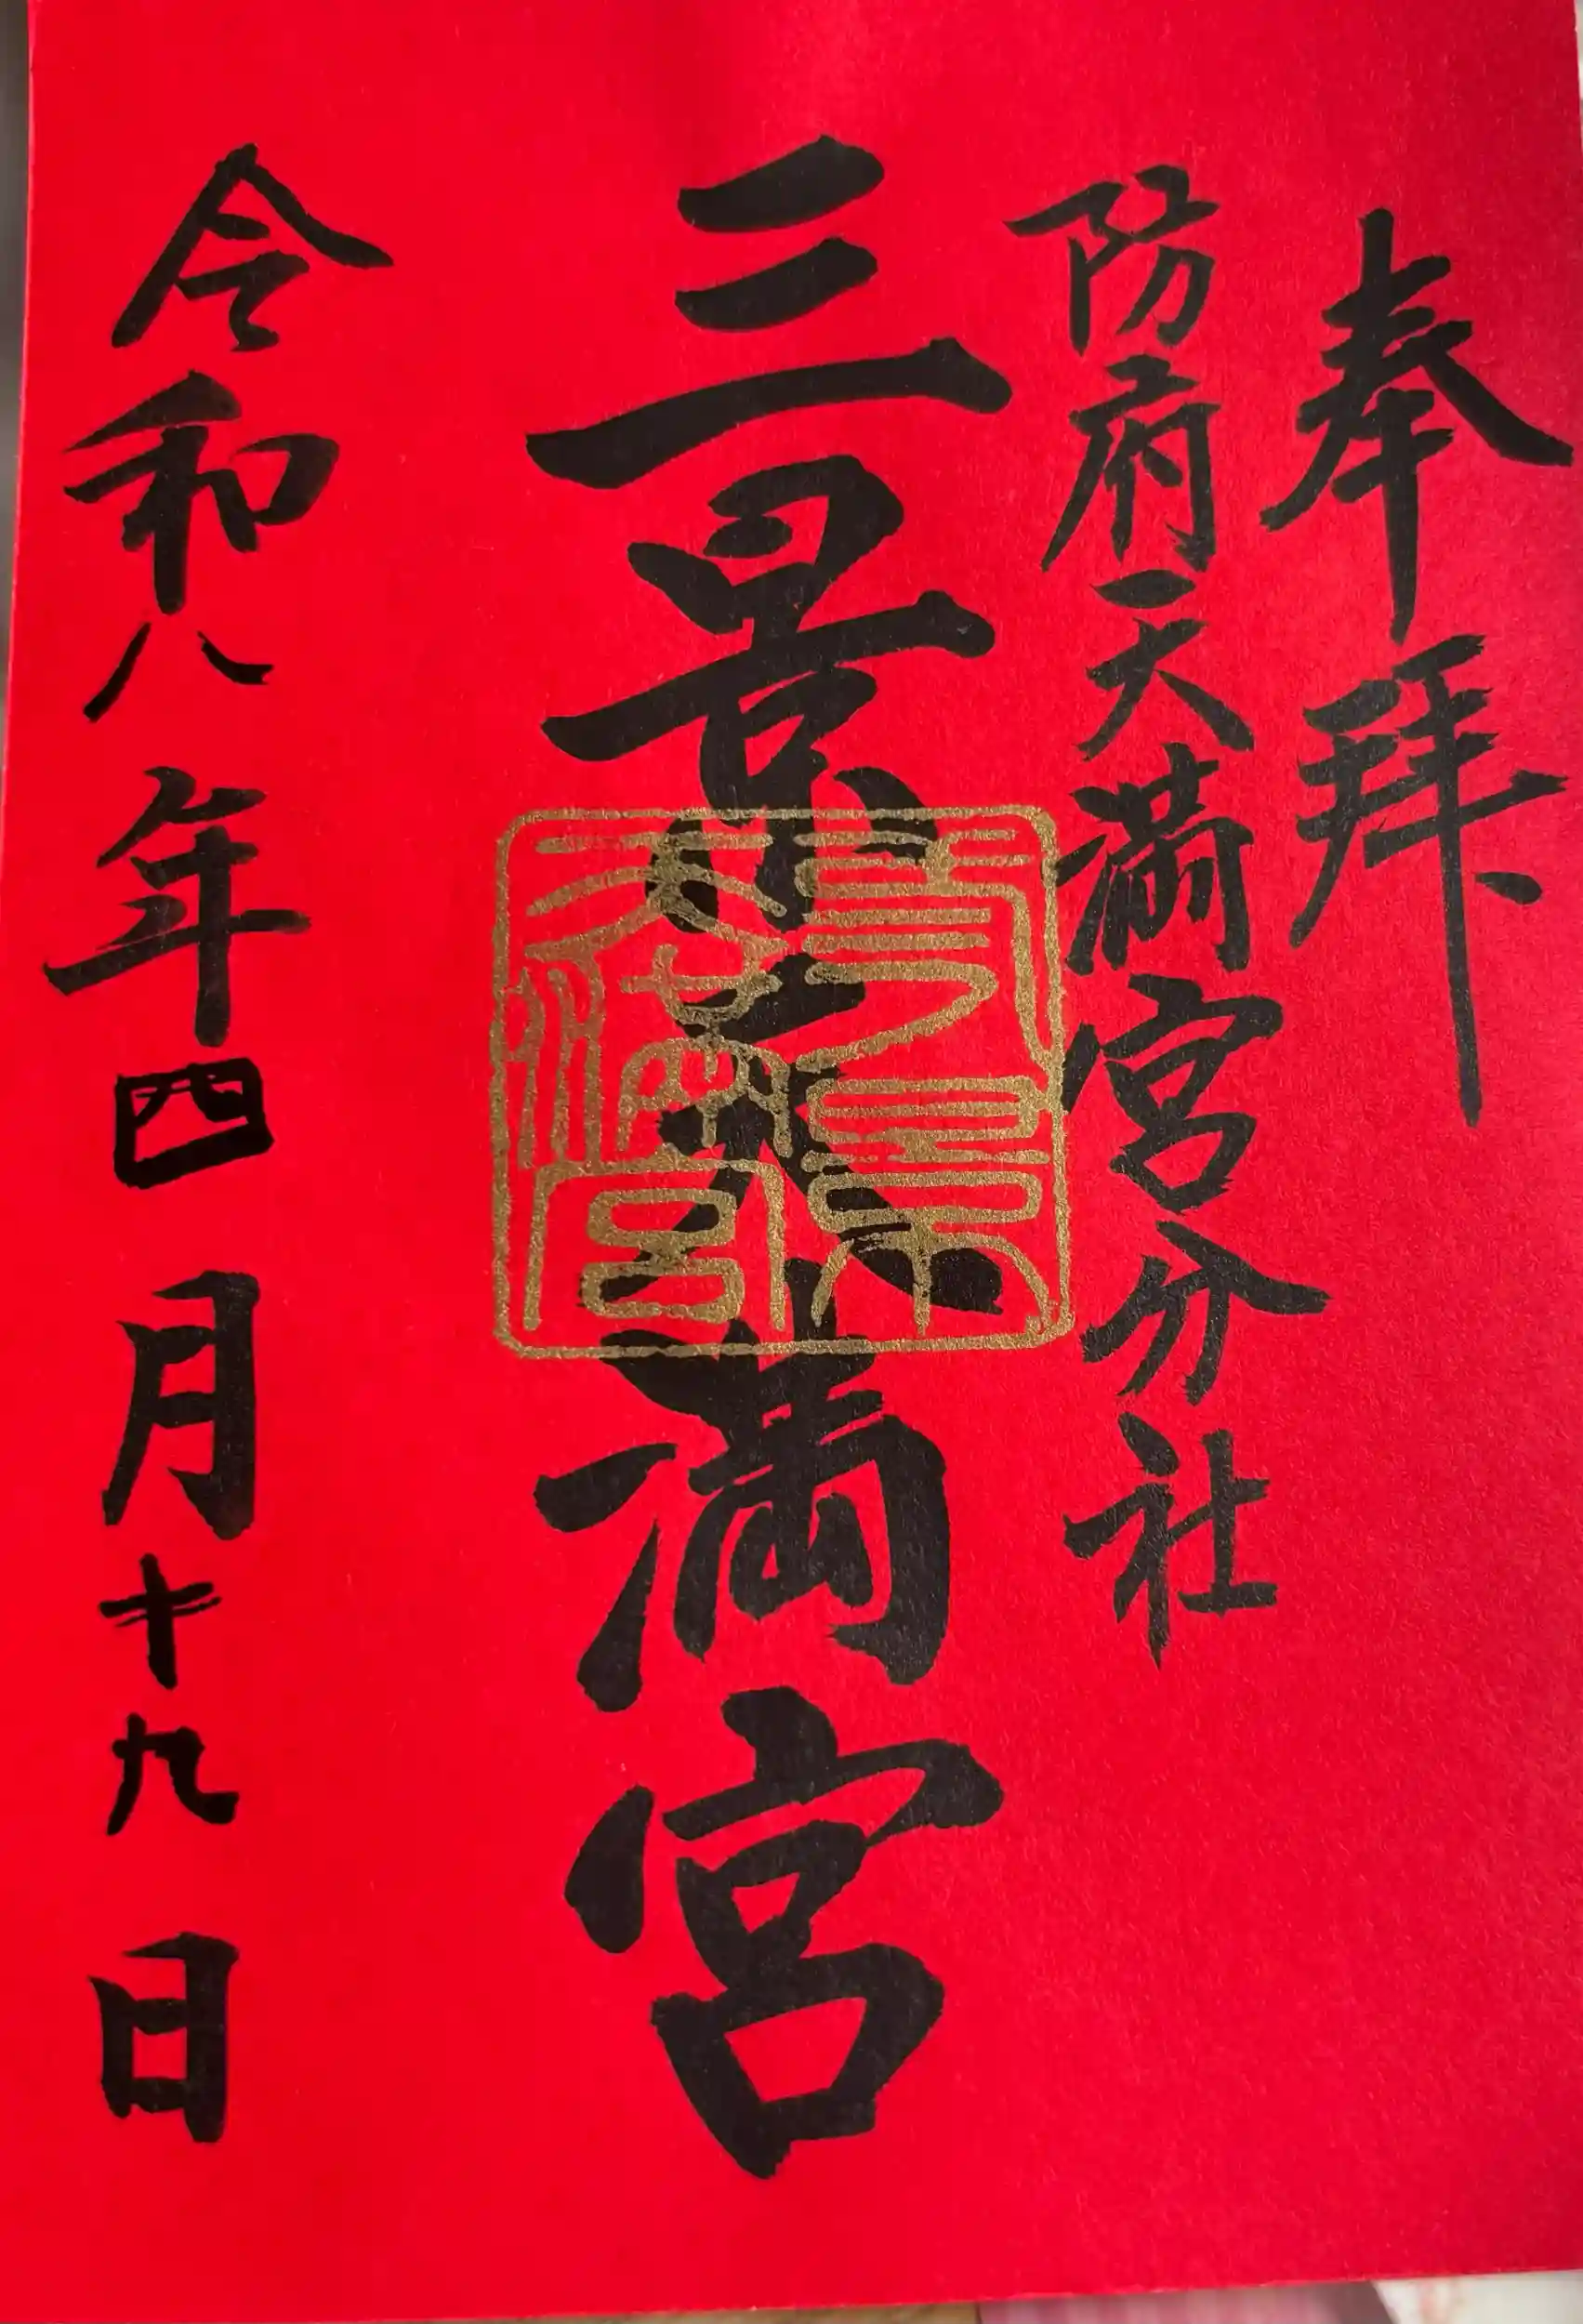 奉拝
防府天満宮分社
三景天満宮
令和八年四月十九日
景
天満宮